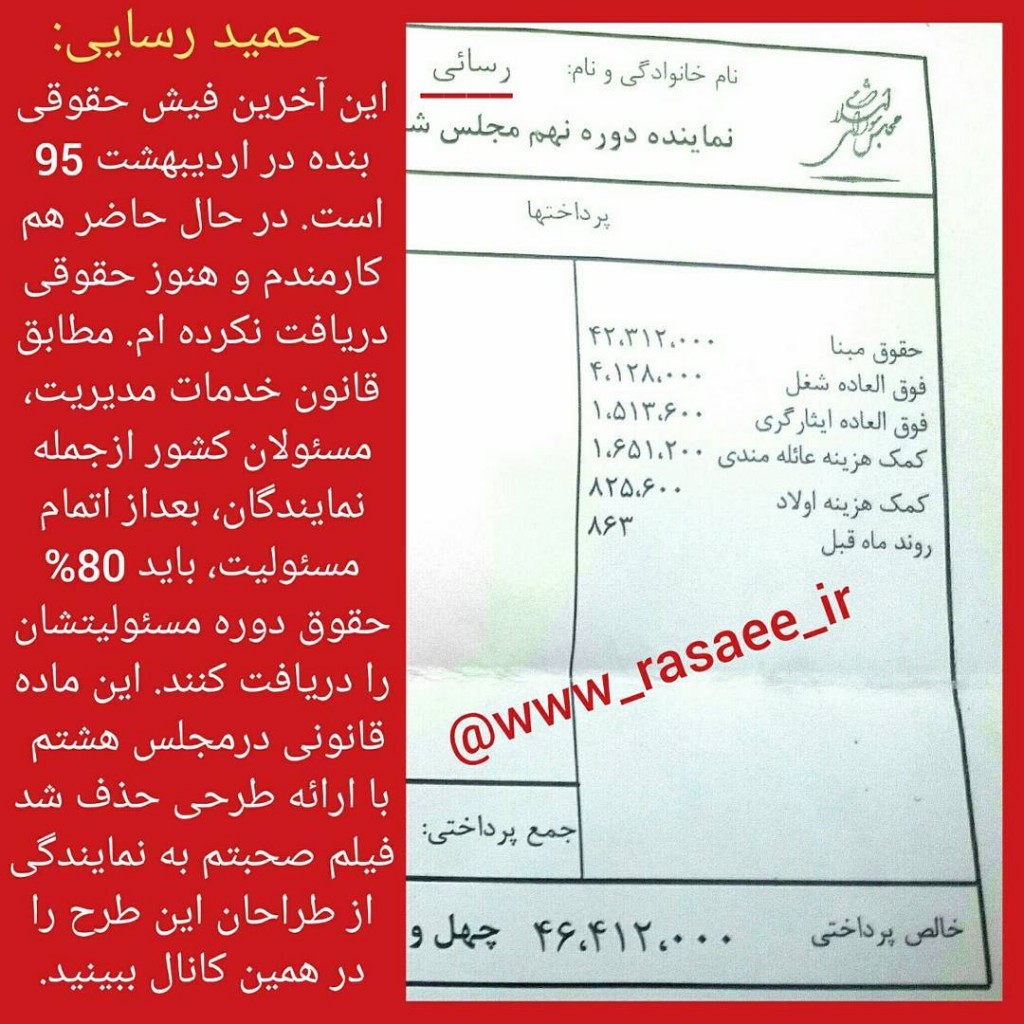 حمید رسایی:
این آخرین فیش حقوقی
بنده در اردیبهشت 95
است. در حال حاضر هم
کارمندم و هنوز حقوقی
دریافت نکرده ام. مطابق
قانون خدمات مدیریت،
مسئولان کشور ازجمله
نمایندگان، بعداز اتمام
مسئولیت، باید 80%
حقوق دوره مسئولیتشان
را دریافت کنند. این ماده
قانونی درمجلس هشتم
با ارائه طرحی حذف شد
فیلم صحبتم به نمایندگی
از طراحان این طرح را
در همین کانال ببینید.
مجلس شورای اسلامی
نام خانوادگی و نام: رسائی
نماینده دوره نهم مجلس ش
پرداختها
حقوق مبنا ۴۲،۳۱۲،۰۰۰
فوق العاده شغل ۴،۱۲۸،۰۰۰
فوق العاده ایثارگری ۱،۵۱۳،۶۰۰
کمک هزینه عائله مندی ۱،۶۵۱،۲۰۰
کمک هزینه اولاد ۸۲۵،۶۰۰
روند ماه قبل ۸۶۳
@www_rasaee_ir
جمع پرداختی:
خالص پرداختی ۴۶،۴۱۲،۰۰۰ چهل و